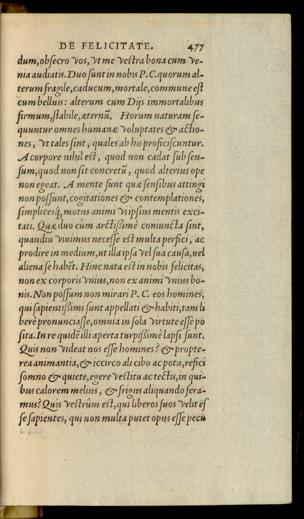 DE FELICITATE. 477
dum, obsecro vos, vt me vestra bona cum ve-
nia audiatis. Duo sunt in nobis P.C. quorum al-
terum fragile, caducum, mortale, commune est
cum belluis: alterum cum Dijs immortalibus
firmum, stabile, æternũ. Horum naturam se-
quuntur omnes humanæ voluptates & actio-
nes, vt tales sint, quales ab his proficiscuntur.
A corpore nihil est, quod non cadat sub sen-
sum, quod non sit concretũ, quod alterius ope
non egeat. A mente sunt quæ sensibus attingi
non possunt, cogitationes & contemplationes,
simplicesq́, motus animi vi ipsius mentis exci-
tati. Quæ duo cùm arctissimè coniuncta sint,
quandiu viuimus necesse est multa perfici, ac
prodire in medium, vt illa ipsa vel sua causa, vel
aliena se habẽt. Hinc nata est in nobis felicitas,
non ex corporis vnius, non ex animi vnius bo-
nis. Non possum non mirari P.C. eos homines,
qui sapientissimi sunt appellati & habiti, tam li
berè pronunciasse, omnia in sola virtute esse po
sita. In re quidẽ illi aperta turpissimè lapsi sunt.
Quis non videat nos esse homines? & propte-
rea animantia, & iccirco ali cibo ac potu, refici
somno & quiete, egere vestitu ac tectis, in qui-
bus calorem melius, & frigus aliquando fera-
mus? Quis vestrûm est, qui liberos suos velit es
se sapientes, qui non multa putet opus esse pecu